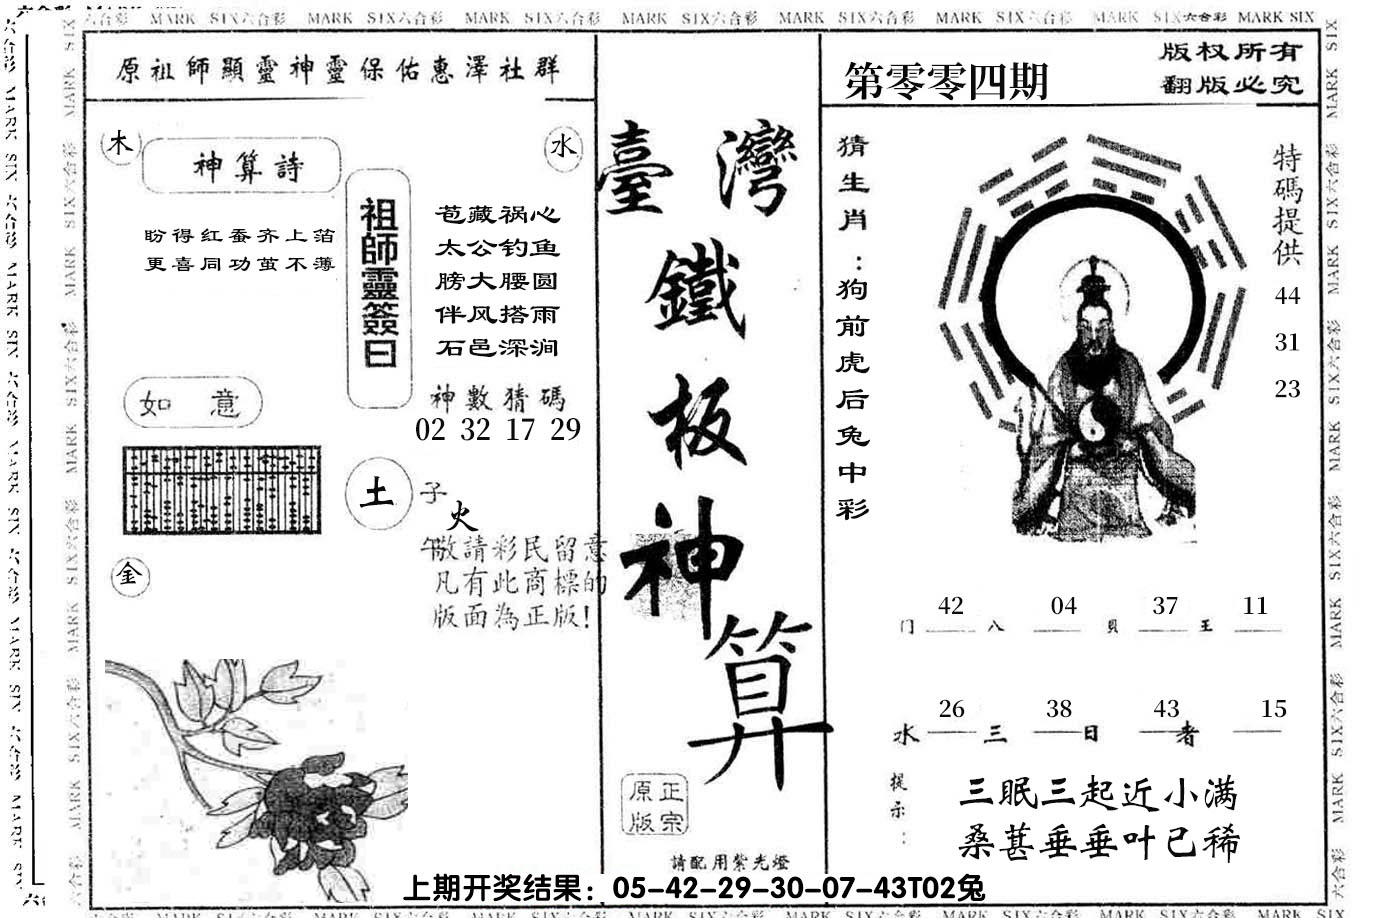 MARK SIX六合彩 MARK SIX六合彩 MARK SIX六合彩 MARK SIX六合彩 MARK SIX六合彩 MARK SIX六合彩 MARK SIX六合彩 MARK SIX
原祖師顯靈神靈保佑惠澤社群
木
水
神算詩
盼得红蚕齐上箔
更喜同功茧不薄
祖師靈簽曰
苞藏祸心
太公钓鱼
膀大腰圆
伴风搭雨
石邑深涧
神數猜碼
02 32 17 29
如意
土
子
火
午
金
敬請彩民留意
凡有此商標的
版面為正版!
臺灣
鐵
板
神
算
正宗
原版
請配用紫光燈
第零零四期
版权所有
翻版必究
猜生肖:狗前虎后兔中彩
特碼提供
44
31
23
42 04 37 11
门 八 貝 王
26 38 43 15
水 三 日 者
提示:
三眠三起近小满
桑葚垂垂叶已稀
上期开奖结果：05-42-29-30-07-43T02兔